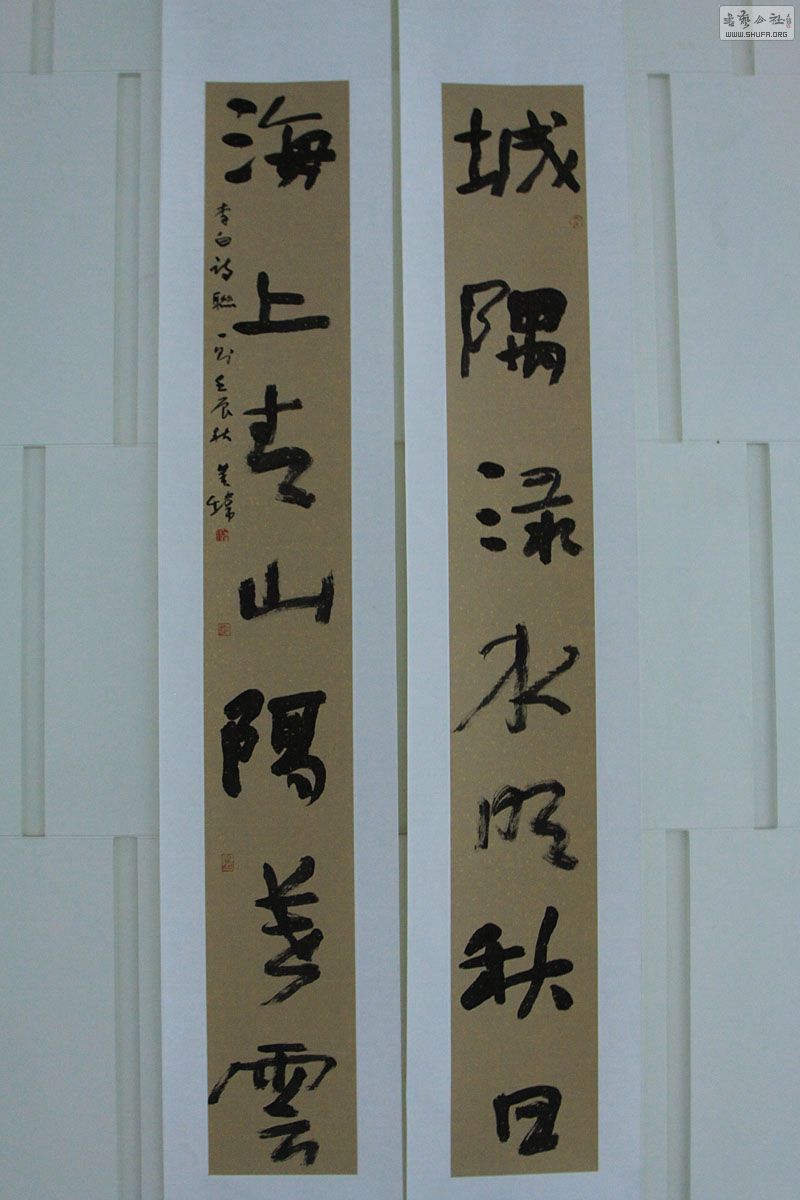 書藝公社
WWW.SHUFA.ORG
城隅渌水明秋日
海上青山隔暮雲
李白詩聯一則壬辰秋